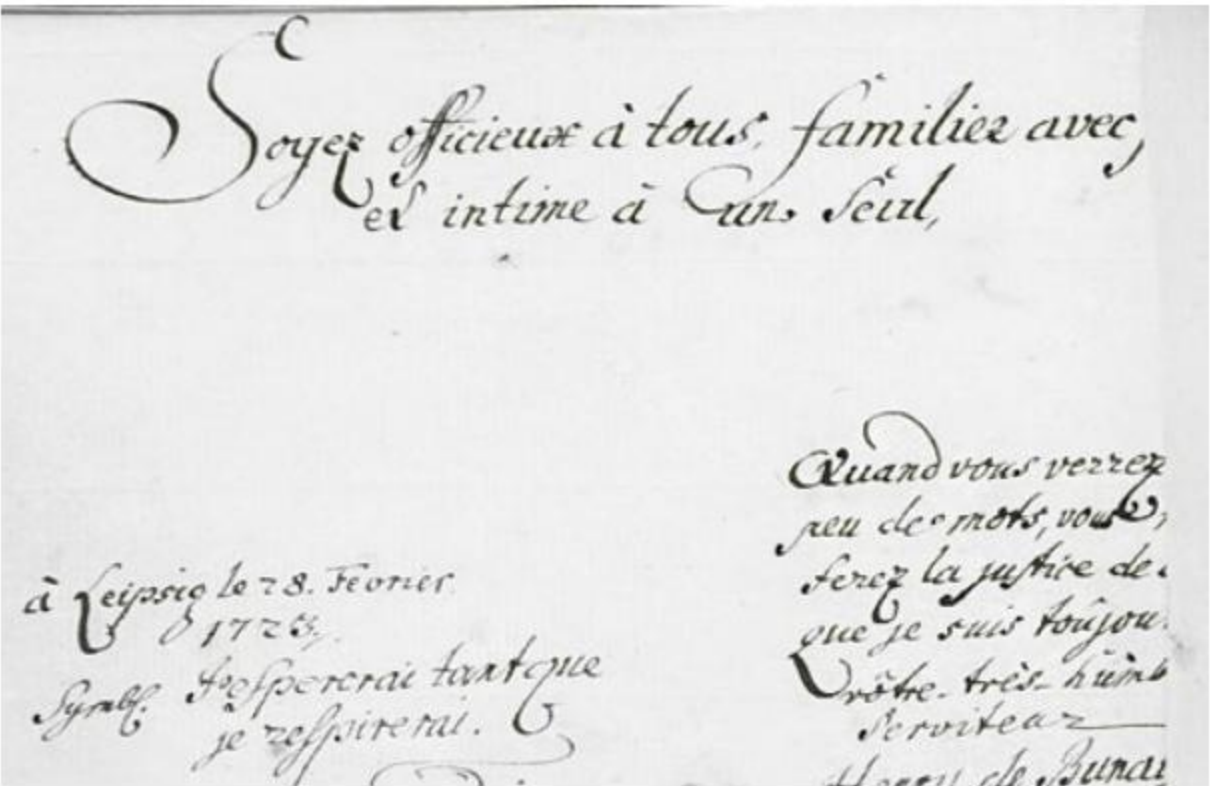 Soyez officieux à tous, familier avec,
et intime à un seul,
à Leipsig le 28. Fevrier
1723.
Symb. J'espererai tant que
je respirerai.
Quand vous verrez
peu de mots, vous
ferez la justice de
que je suis toûjou
vôtre très-humb
Serviteur
Henry de Bunau